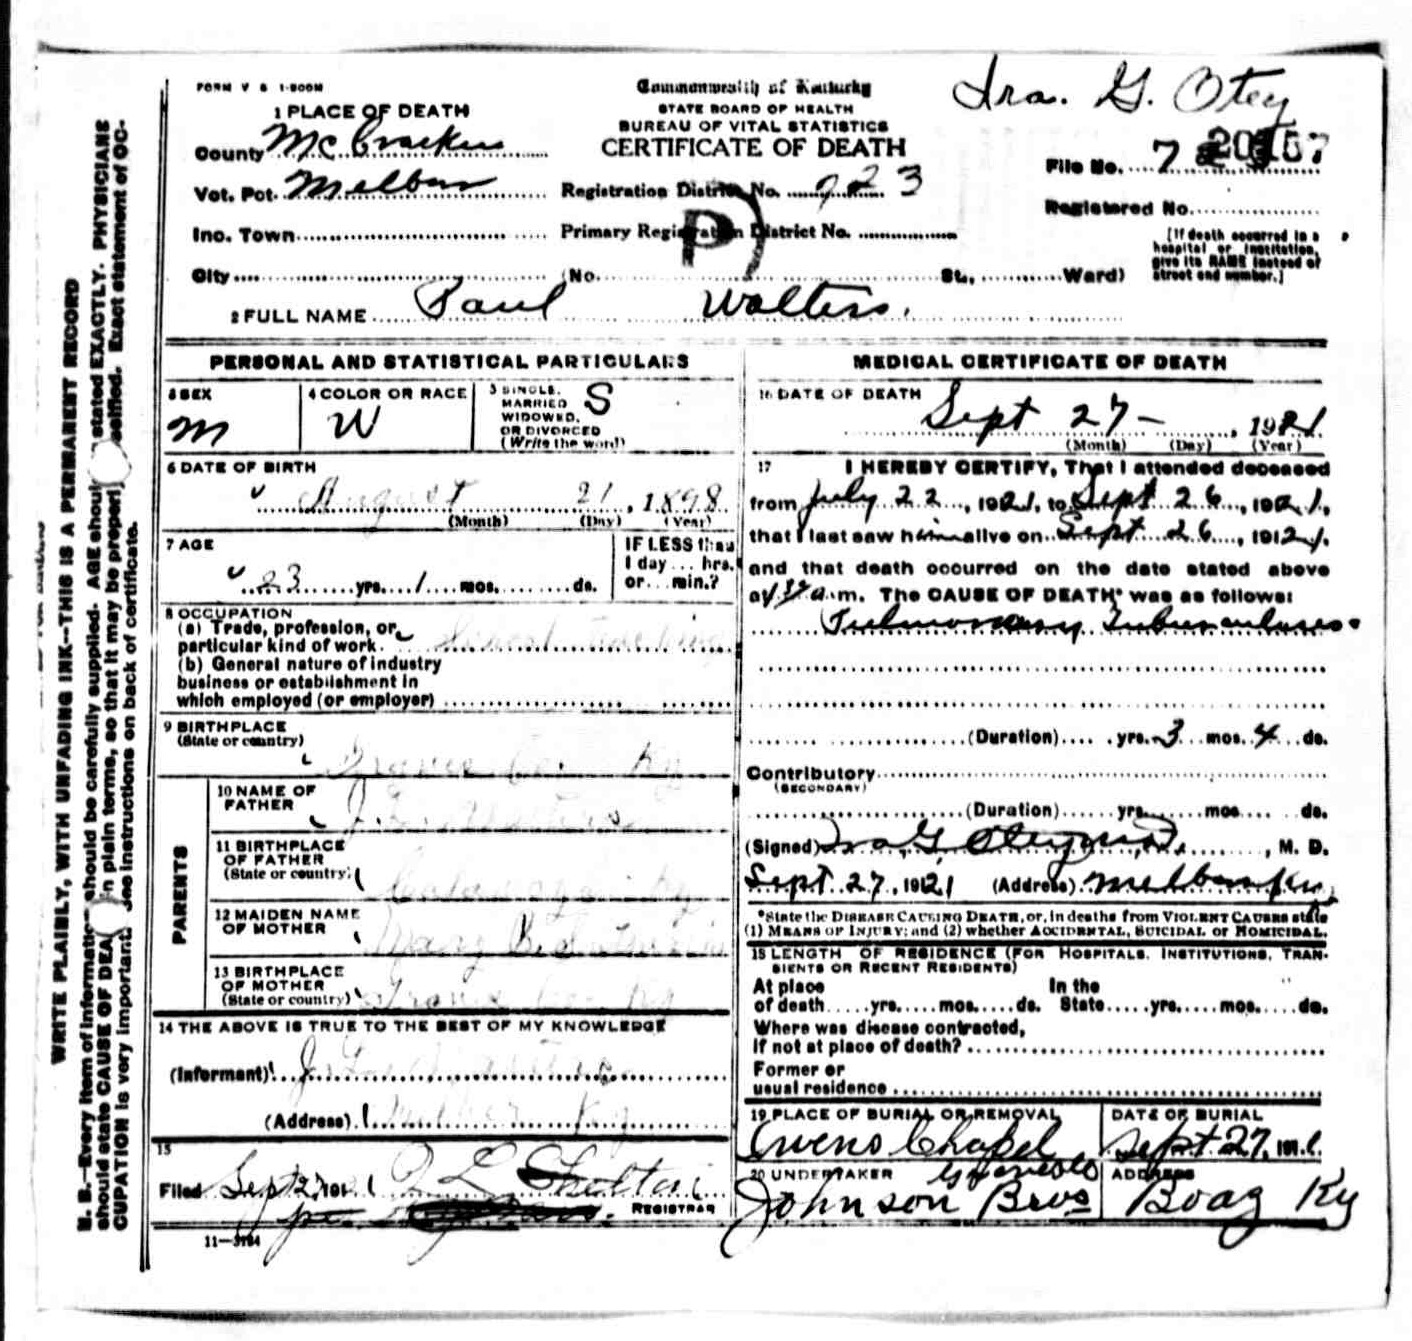 FORM V S 1-500M
Commonwealth of Kentucky
Ira. G. Otey
STATE BOARD OF HEALTH
BUREAU OF VITAL STATISTICS
CERTIFICATE OF DEATH
1 PLACE OF DEATH
County McCracken
Vot. Pct. Melber
Inc. Town
City (No. St., Ward)
Registration District No. 923
Primary Registration District No.
P
File No. 7
Registered No.
[If death occurred in a
hospital or institution,
give its NAME instead of
street and number.]
2 FULL NAME Paul Walters.
PERSONAL AND STATISTICAL PARTICULARS
3 SEX
M
4 COLOR OR RACE
W
5 SINGLE,
MARRIED
WIDOWED,
OR DIVORCED
(Write the word)
S
6 DATE OF BIRTH
August 21, 1898
(Month) (Day) (Year)
7 AGE
23 yrs. 1 mos. ds.
IF LESS than
1 day... hrs.
or... min.?
8 OCCUPATION
(a) Trade, profession, or
particular kind of work. School Teaching
(b) General nature of industry
business or establishment in
which employed (or employer)
9 BIRTHPLACE
(State or country)
Graves Co. Ky
PARENTS
10 NAME OF
FATHER
J. L. Walters
11 BIRTHPLACE
OF FATHER
(State or country)
Ky
12 MAIDEN NAME
OF MOTHER
Mary B.
13 BIRTHPLACE
OF MOTHER
(State or country)
Graves Co. Ky
14 THE ABOVE IS TRUE TO THE BEST OF MY KNOWLEDGE
(Informant) J. L. Walters
(Address) Melber Ky
15
Filed Sept 27, 1921 L Shelton
REGISTRAR
11—3184
MEDICAL CERTIFICATE OF DEATH
16 DATE OF DEATH
Sept 27 - , 1921
(Month) (Day) (Year)
17 I HEREBY CERTIFY, That I attended deceased
from July 22, 1921, to Sept 26, 1921,
that I last saw him alive on Sept 26, 1921.
and that death occurred on the date stated above
at a.m. The CAUSE OF DEATH* was as follows:
Pulmonary Tuberculosis.
(Duration) yrs. 3 mos. 4 ds.
Contributory
(SECONDARY)
(Duration) yrs. mos. ds.
(Signed) Ira G Otey M.D., M. D.
Sept 27, 1921 (Address) Melber Ky
*State the DISEASE CAUSING DEATH, or, in deaths from VIOLENT CAUSES state
(1) MEANS OF INJURY; and (2) whether ACCIDENTAL, SUICIDAL or HOMICIDAL.
18 LENGTH OF RESIDENCE (FOR HOSPITALS, INSTITUTIONS, TRAN-
SIENTS OR RECENT RESIDENTS)
At place In the
of death yrs. mos. ds. State yrs. mos. ds.
Where was disease contracted,
If not at place of death?
Former or
usual residence
19 PLACE OF BURIAL OR REMOVAL
Owens Chapel
Graves Co
DATE OF BURIAL
Sept. 27, 192
20 UNDERTAKER
Johnson Bros
ADDRESS
Boaz Ky
WRITE PLAINLY, WITH UNFADING INK—THIS IS A PERMANENT RECORD
N. B.—Every item of information should be carefully supplied. AGE should stated EXACTLY. PHYSICIANS
should state CAUSE OF DEA in plain terms, so that it may be properl ssified. Exact statement of OC-
CUPATION is very important. See instructions on back of certificate.